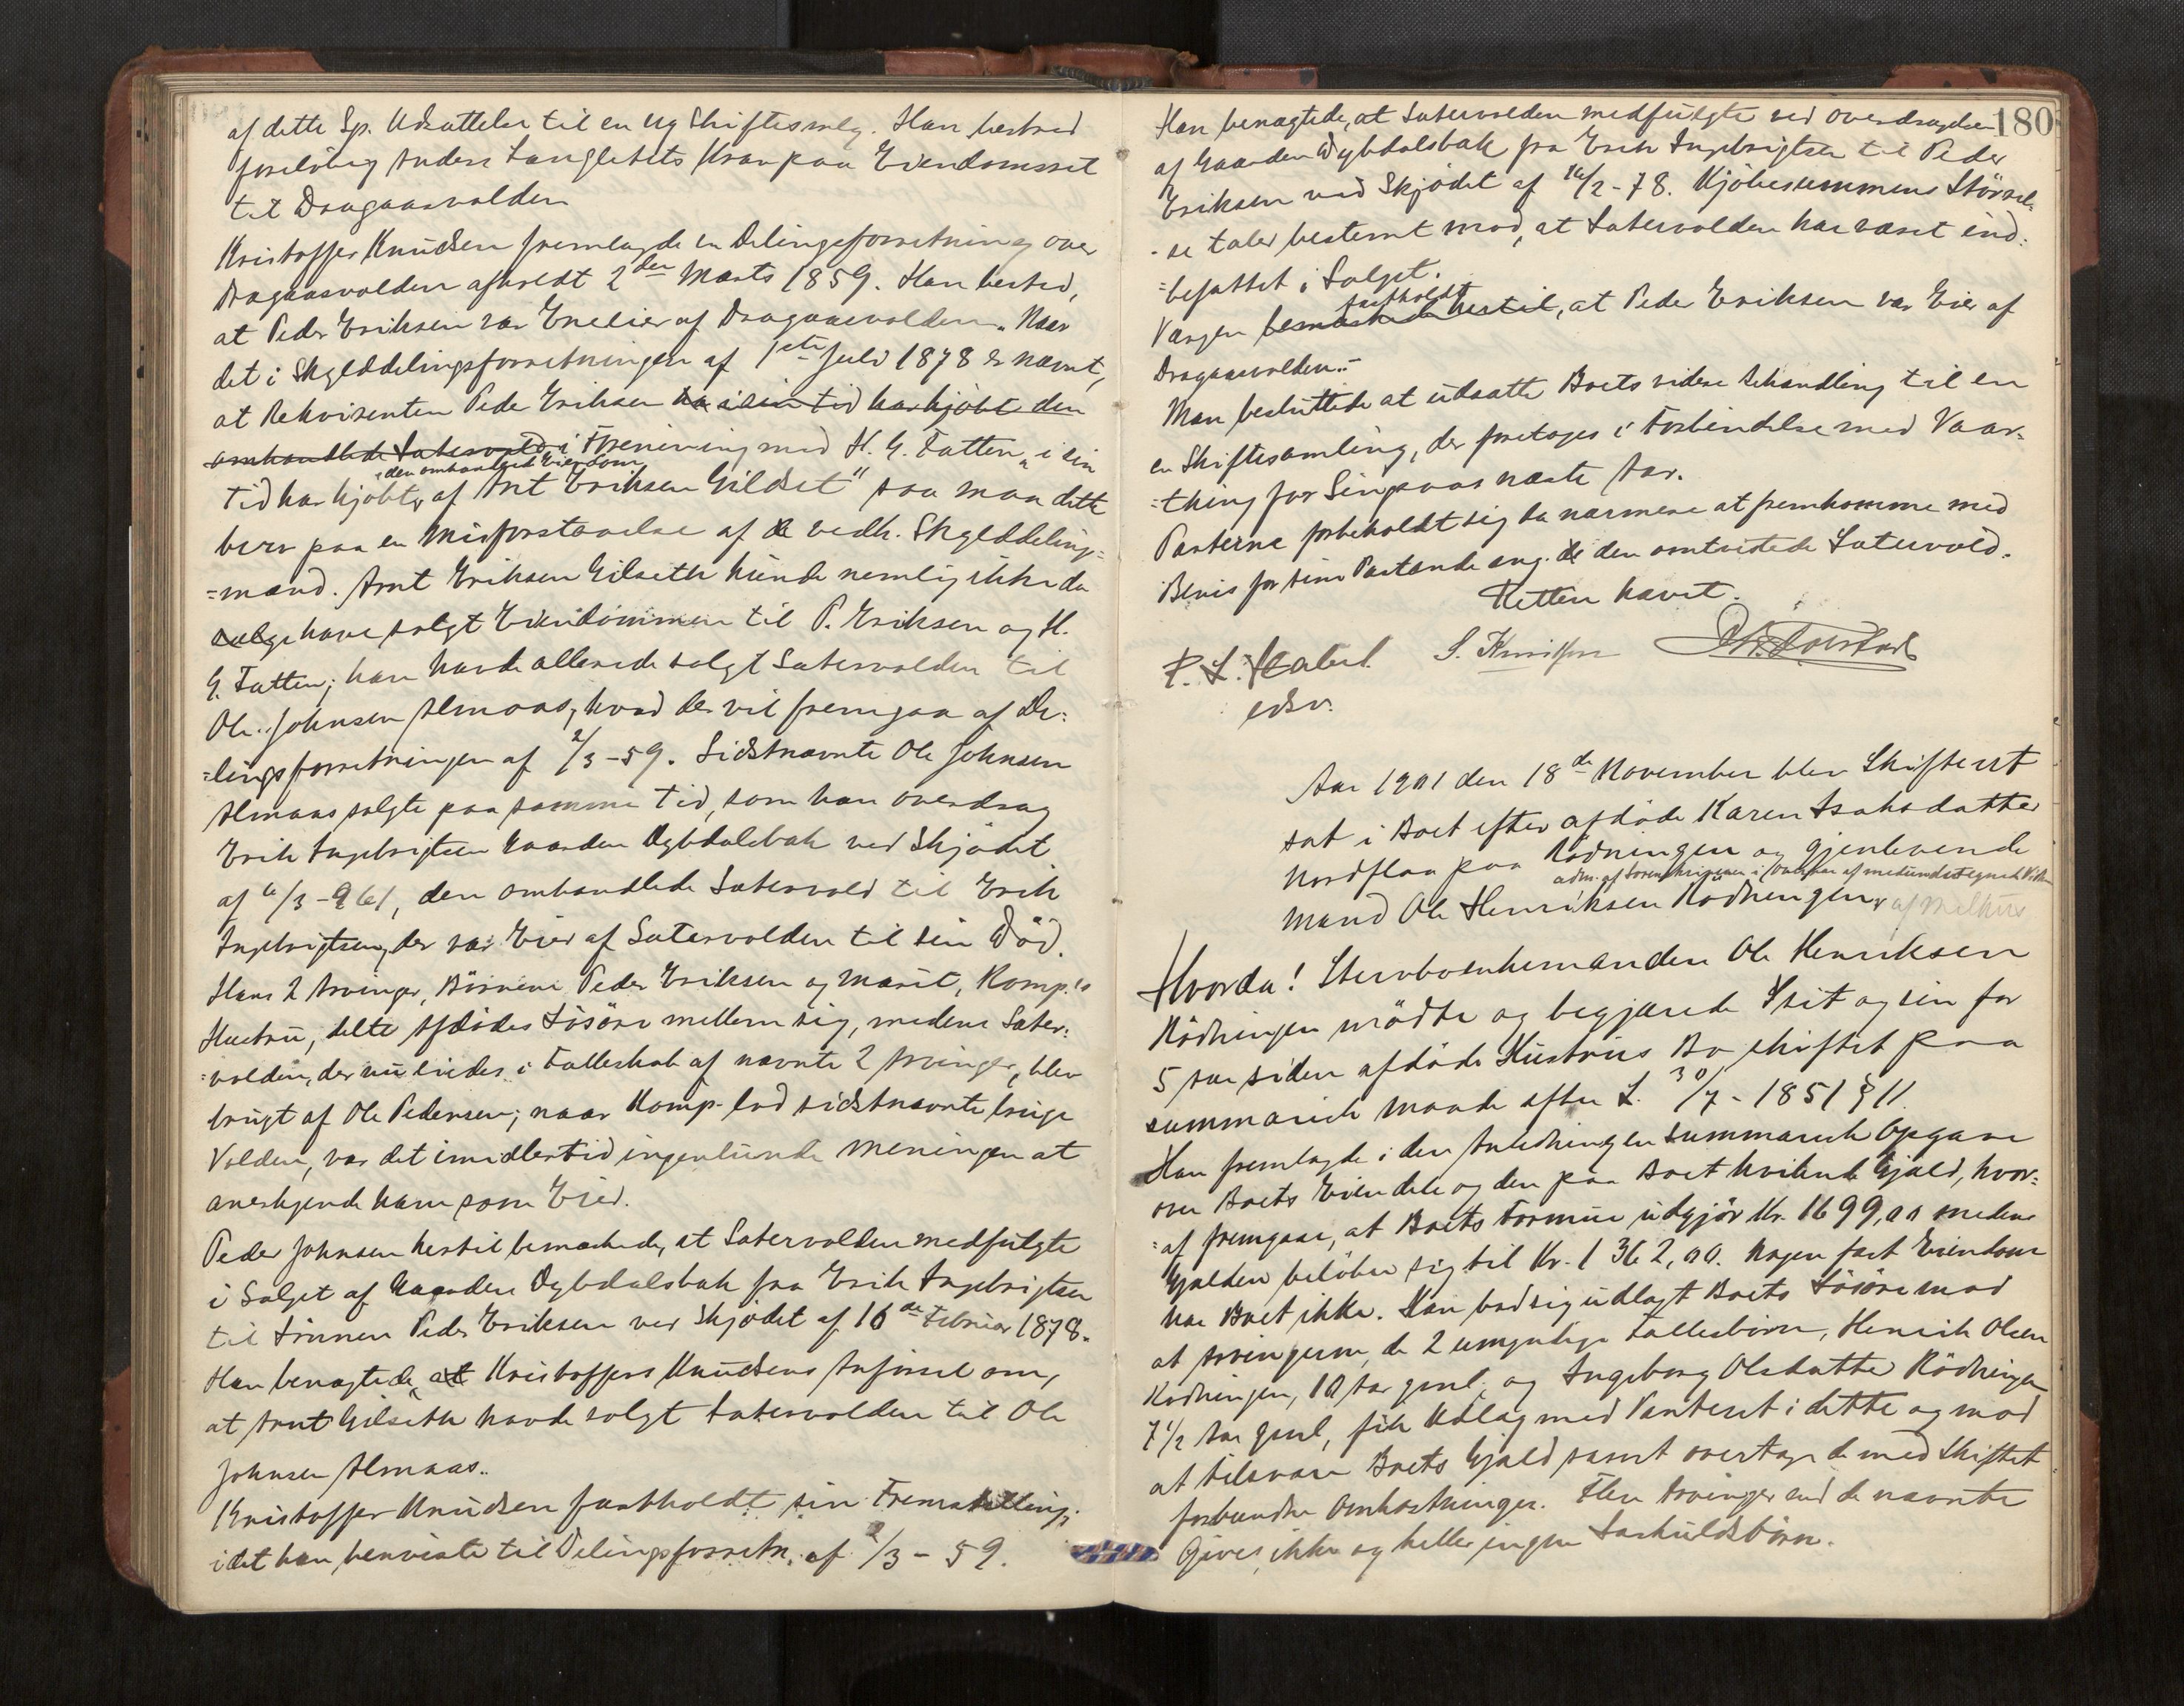 af dette Sp. Udsættelse til en ny Skiftesmlg. Han bestred
foreløbig Anders Langletets Krav paa Eiendomsret
til Dragaasvolden
Kristoffer Knudsen fremlagde en Delingsforretning over
Dragaasvolden afholdt 2den Marts 1859. Han bestred,
at Peder Eriksen var Eneeier af Dragaasvolden. Naar
det i Skylddelingsforretningen af 1ste Juli 1878 er nævnt,
at Rekvirenten Peder Eriksen i sin tid har kjøbt den
omhandlede Sætervold i Forening med H. G. Tatten "i sin
den omhandlede Eiendom
Tid har kjøbt af Arnt Eriksen Gildset" saa maa dette
bero paa en Misforstaaelse af de vedk. Skylddelings=
=mænd. Arnt Eriksen Gilseth kunde nemlig ikke da
sælge have solgt Eiendommen til P. Eriksen og H.
G. Tatten; han havde allerede solgt Sætervolden til
Ole Johnsen Almaas, hvad der vil fremgaa af De=
=lingsforretningen af 2/3-59. Sidstnævnte Ole Johnsen
Almaas solgte paa samme Tid, som han overdrog
Erik Ingebrigtsen Gaarden Dybdalsbak ved Skjødet
af 6/3-61, den omhandlede Sætervold til Erik
Ingebrigtsen, der var Eier af Sætervolden til sin Død.
Hans 2 Arvinger, Børnene Peder Eriksen og Marit, Komp.s
Hustru, delte Afdødes Løsøre mellem sig, medens Sæter=
=volden, der nu eiedes i Fælleskab af nævnte 2 Arvinger, blev
brugt af Ole Pedersen; naar Komp. lod sidstnævnte bruge
Volden, var det imidlertid ingenlunde Meningen at
anerkjende ham som Eier.
Peder Johnsen hertil bemærkede, at Sætervolden medfulgte
i Salget af Gaarden Dybdalsbak fra Erik Ingebrigtsen
til Sønnen Peder Eriksen ved Skjødet af 16de Februar 1878.
Han benægtede, at Kristoffers Knudsens Anførsel om,
at Arnt Gilseth havde solgt Sætervolden til Ole
Johnsen Almaas.
Kristoffer Knudsen fastholdt sin Fremstilling,
idet han henviste til Delingsforretn. af 2/3-59.
180
Han benægtede, at Sætervolden medfulgte ved Overdragelsen
af Gaarden Dybdalsbak fra Erik Ingebrigtsen til Peder
Eriksen ved Skjødet af 16/2-78. Kjøbesummens Størrel=
-se taler bestemt mod, at Sætervolden har været ind=
=befattet i Salget.
fastholdt
Værgen bemærkede hertil, at Peder Eriksen var Eier af
Dragaasvolden.
Man besluttede at udsætte Boets videre Behandling til en
en Skiftesamling, der foretages i Forbindelse med Vaar=
=thing for Singsaas næste Aar.
Parterne forbeholdt sig da nærmere at fremkomme med
Bevis for sine Paastande ang. de den omtvistede Sætervold.
Retten hævet.
edsv.
Aar 1901 den 18de November blev Skifteret
sat i Boet efter afdøde Karen Isaksdatter
Nordflaa paa Rødningen og gjenlevende
adm. af Sorenskriveren i Overvær af medundertegnede Vidne
Mand Ole Henriksen Rødningen af Melhus
Hvorda! Stervboenkemanden Ole Henriksen
Rødningen mødte og begjærede sit og sin for
5 Aar siden afdøde Hustrus Bo skiftet paa
summarisk Maade efter L. 30/7-1851 § 11.
Han fremlagde i den Anledning en summarisk Opgave
over Boets Eiendele og den paa Boet hvilende Gjæld, hvor=
=af fremgaar, at Boets Formue udgjør Kr. 1699,00 medens
Gjælden beløber sig til Kr. 1362,00. Nogen fast Eiendom
har Boet ikke. Han bad sig udlagt Boets Løsøre mod
at Arvingerne, de 2 umyndige Fællesbørn, Henrik Olsen
Rødningen, 10 Aar gml., og Ingeborg Olsdatter Rødningen
7 1/2 Aar gml, fik Udlæg med Panteret i dette og mod
at tilsvare Boets Gjæld samt overtage de med Skiftet
forbundne Omkostninger. Flere Arvinger end de nævnte
gives ikke og heller ingen Særkuldsbørn.